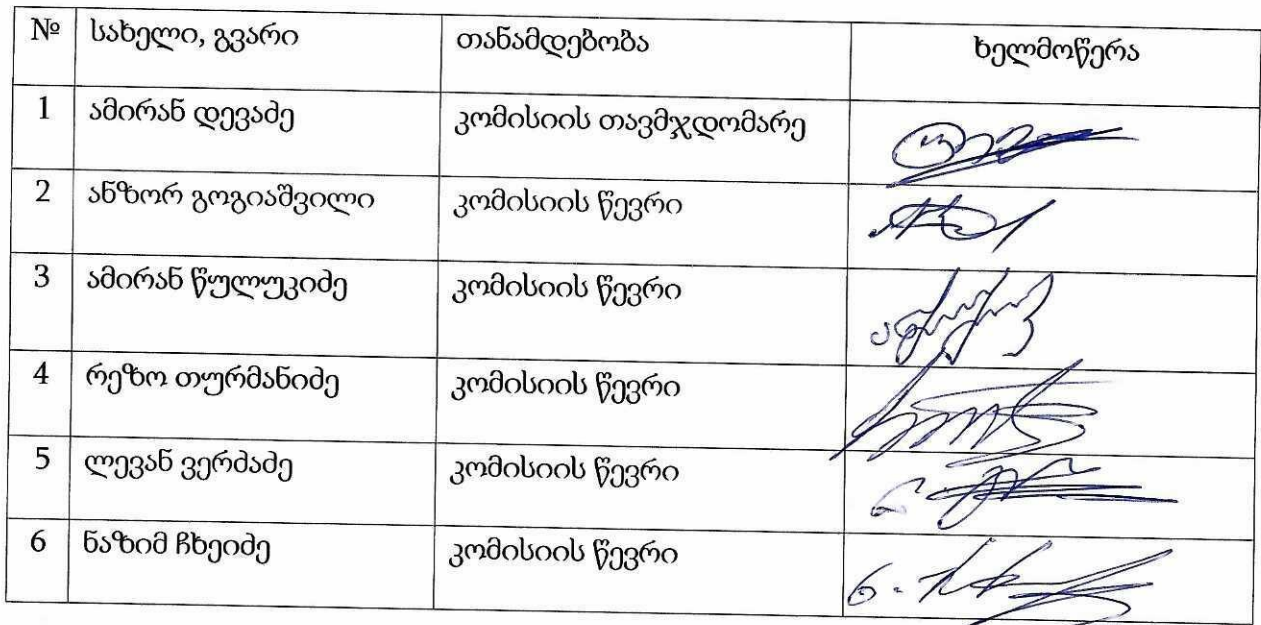 № სახელი, გვარი თანამდებობა ხელმოწერა
1 ამირან დევაძე კომისიის თავმჯდომარე
2 ანზორ გოგიაშვილი კომისიის წევრი
3 ამირან წულუკიძე კომისიის წევრი
4 რეზო თურმანიძე კომისიის წევრი
5 ლევან ვერძაძე კომისიის წევრი
6 ნაზიმ ჩხეიძე კომისიის წევრი